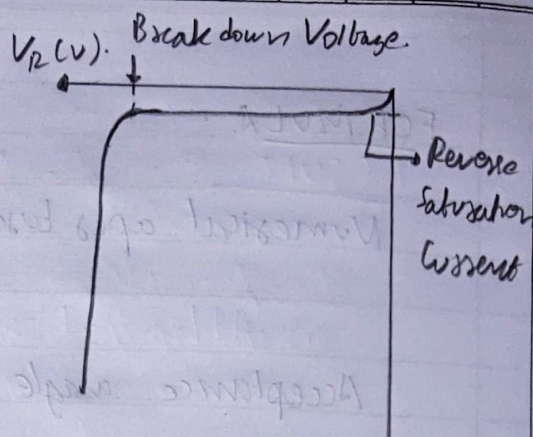 Breakdown Voltage.
VR(V).
Reverse
Saturation
Current